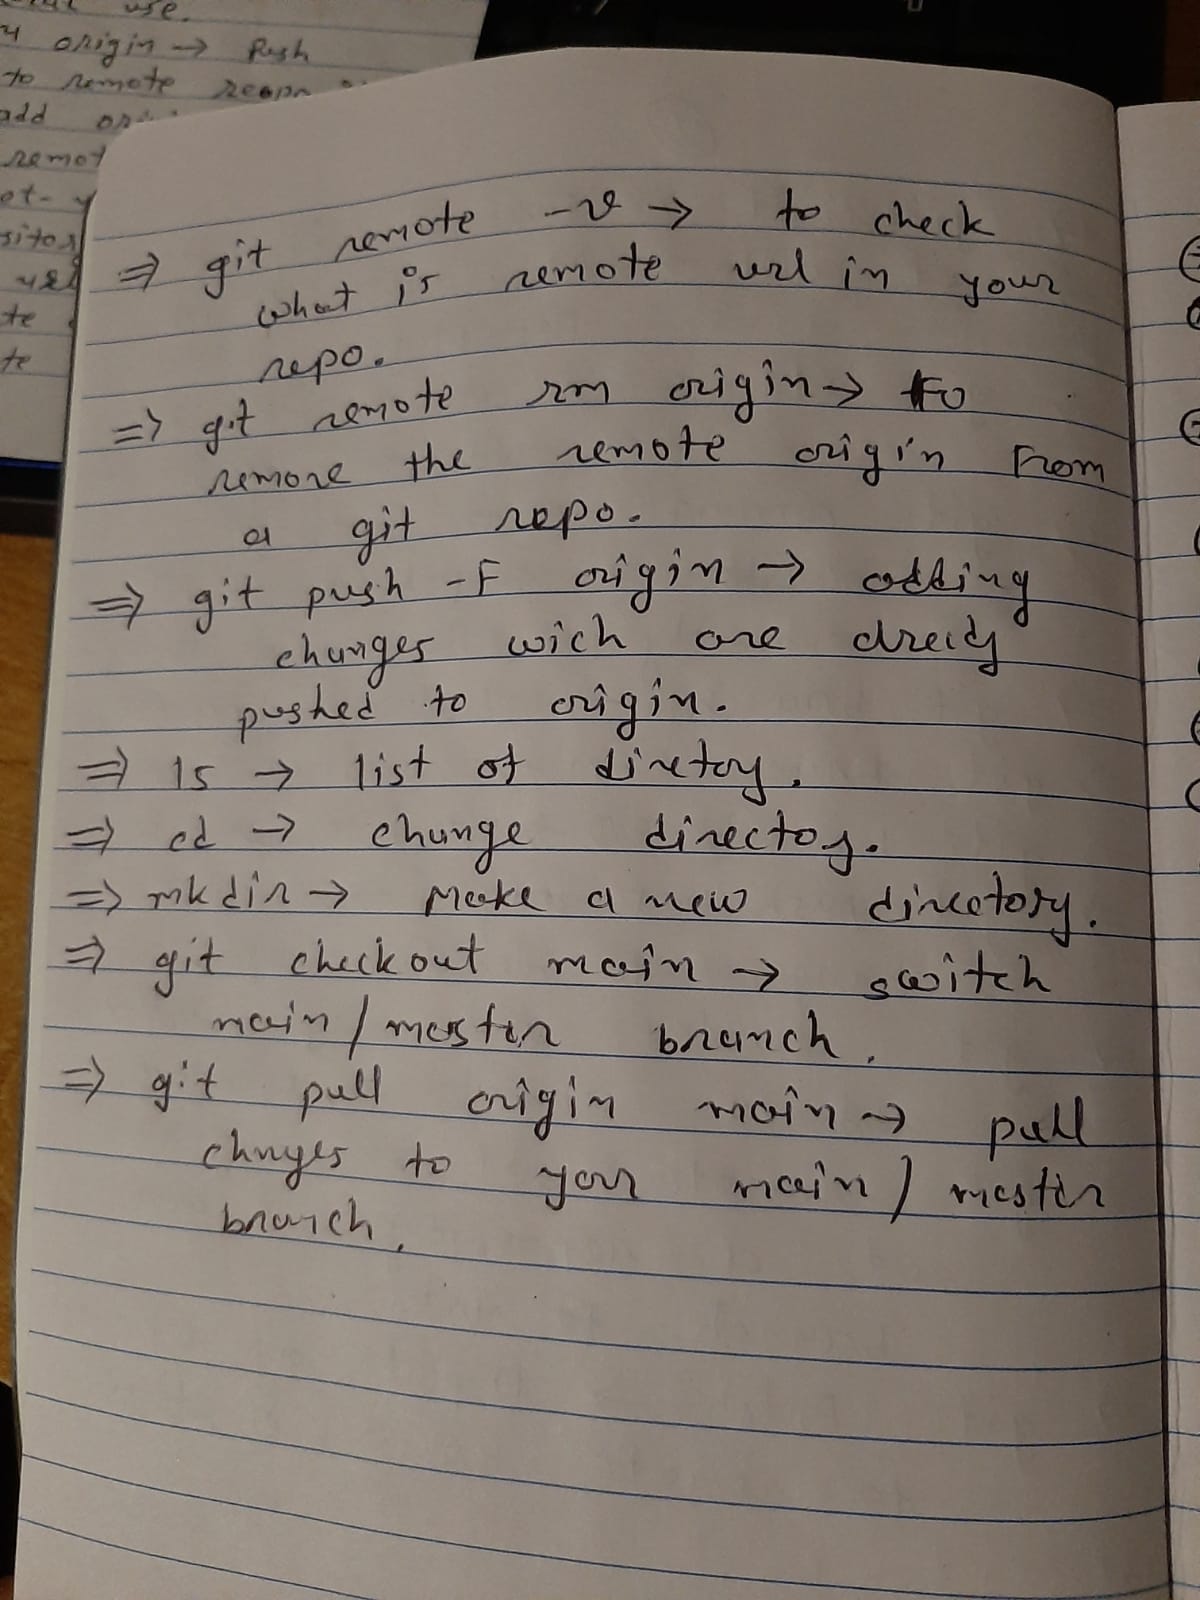 use.
origin → Push
to remote
add
remot
ot-
te
te
⇒ git remote -v → to check
what is remote url in your
repo.
⇒ git remote rm origin → to
remove the remote origin From
a git repo.
⇒ git push -F origin → adding
changes wich are
pushed to origin.
⇒ ls → list of diretoy.
⇒ cd → change directoy.
⇒ mkdir → Make a new directory.
⇒ git checkout main → switch
main/master branch.
⇒ git pull origin main → pull
chnges to your main/master
branch.